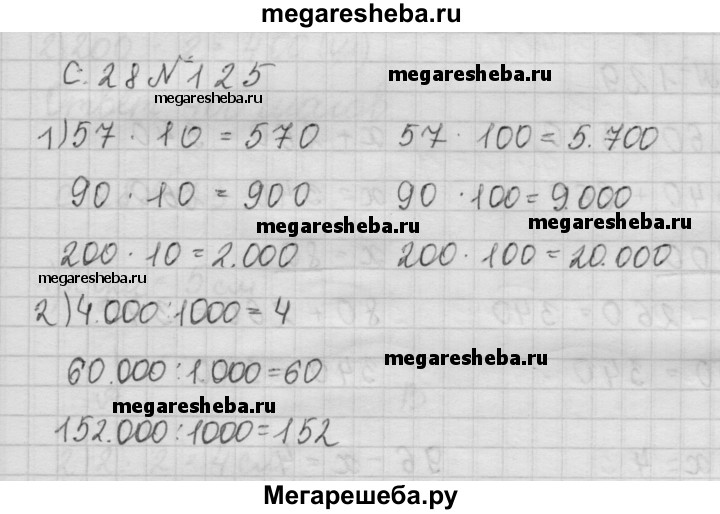 megaresheba.ru
С. 28 № 125
megaresheba.ru
megaresheba.ru
1) 57 · 10 = 570 57 · 100 = 5.700
90 · 10 = 900 90 · 100 = 9.000
megaresheba.ru
megaresheba.ru
200 · 10 = 2.000 200 · 100 = 20.000
megaresheba.ru
2) 4.000 : 1000 = 4
60.000 : 1.000 = 60
megaresheba.ru
megaresheba.ru
152.000 : 1000 = 152
Мегарешеба.ру